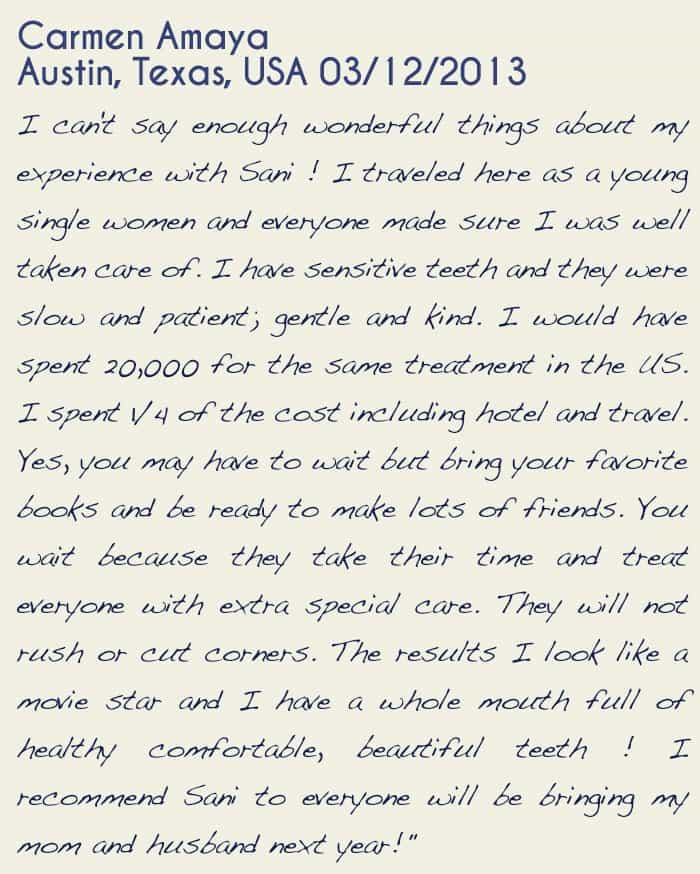 Carmen Amaya
Austin, Texas, USA 03/12/2013
I can't say enough wonderful things about my
experience with Sani ! I traveled here as a young
single women and everyone made sure I was well
taken care of. I have sensitive teeth and they were
slow and patient; gentle and kind. I would have
spent 20,000 for the same treatment in the US.
I spent 1/4 of the cost including hotel and travel.
Yes, you may have to wait but bring your favorite
books and be ready to make lots of friends. You
wait because they take their time and treat
everyone with extra special care. They will not
rush or cut corners. The results I look like a
movie star and I have a whole mouth full of
healthy comfortable, beautiful teeth ! I
recommend Sani to everyone will be bringing my
mom and husband next year!"